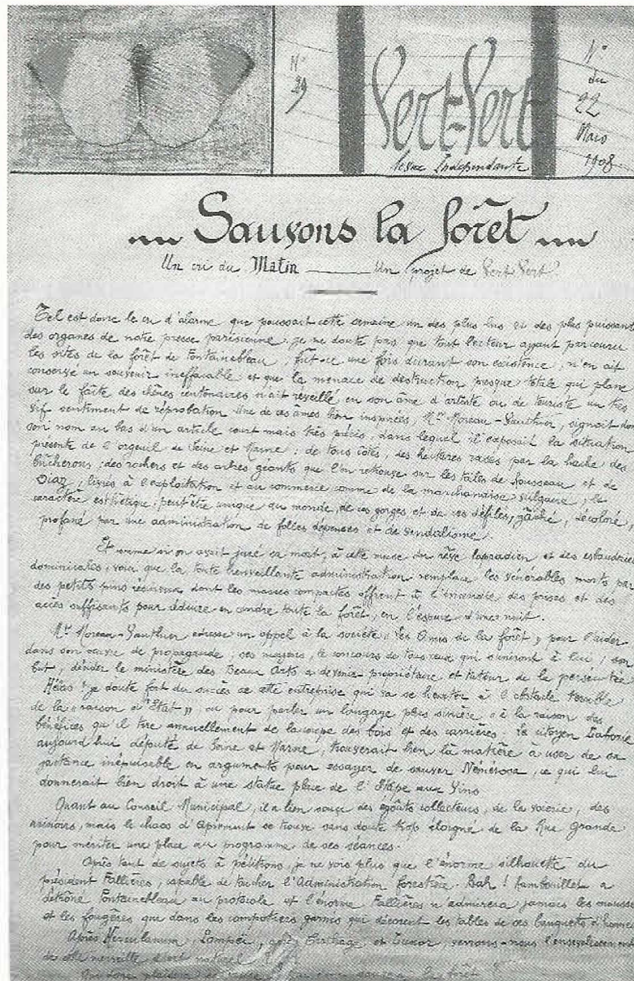 N°
29
Vert-Vert
Revue Indépendante
N°
du
22
Mars
1908
Sauvons la forêt
Un cri du Matin Un projet de Vert-Vert
Tel est donc le cri d'alarme que poussait cette semaine un des plus lus et des plus puissants
des organes de notre presse parisienne ; je ne doute pas que tout lecteur ayant parcouru
les sites de la forêt de Fontainebleau, fut-ce une fois durant son existence, n'en ait
conservé un souvenir ineffaçable et que la menace de destruction presque totale qui plane
sur le faîte des chênes centenaires n'ait réveillé, en son âme d'artiste ou de touriste un très
vif sentiment de réprobation. Une de ces âmes bien inspirées, Mr. Moreau-Vauthier, signait donc
son nom au bas d'un article court mais très précis, dans lequel il exposait la situation
présente de l'orgueil de Seine et Marne ; de tous côtés, des hectares rasés par la hache des
bûcherons, des rochers et des arbres géants que l'on retrouve sur les toiles de Rousseau et de
Diaz, livrés à l'exploitation et au commerce comme de la marchandise vulgaire, le
caractère esthétique, peut être unique au monde, de ces gorges et de ces défilés, gâché, décoloré,
profané par une administration de folles dépenses et de vandalisme.
Et comme si on avait juré sa mort, à cette muse du rêve
dominicales, voir que la toute bienveillante administration remplace les vénérables morts par
des petits pins résineux dont les masses compactes offrent à l'incendie des proies et des
accès suffisants pour réduire en cendre toute la forêt, en l'espace d'une nuit.
Mr. Moreau-Vauthier adresse un appel à la société "les Amis de la forêt" pour l'aider
dans son œuvre de propagande ; ses moyens, le concours de tous ceux qui s'uniront à lui ; son
but, décider le ministère des Beaux Arts à devenir propriétaire et tuteur de la persécutée
Hélas ! je doute fort du succès de cette entreprise qui va se heurter à l'obstacle terrible
de la "raison d'Etat", ou pour parler un langage plus sincère, à la raison des
bénéfices qu'il tire annuellement de la coupe des bois et des carrières. Le citoyen
aujourd'hui député de Seine et Marne, trouverait bien là matière à user de sa
jactance inépuisable en arguments pour essayer de sauver Némorosa, ce qui lui
donnerait bien droit à une statue place de l'Etape aux Vins
Quant au Conseil Municipal, il a bien souci des égoûts collecteurs, de la voierie, des
urinoirs, mais le chaos d'Apremont se trouve sans doute trop éloigné de la Rue Grande
pour mériter une place au programme de ses séances.
Après tant de sujets à pétitions, je ne vois plus que l'énorme silhouette du
président Fallières, capable de toucher l'Administration forestière. Bah ! Rambouillet a
détrôné Fontainebleau au protocole et l'énorme Fallières n'admirera jamais les mousses
et les fougères que dans les compotiers garnis qui décorent les tables de ses banquets d'honneur
Après Herculanum, Pompéi, Carthage, et Luxor, verrons-nous l'ensevelissement
de cette merveille d'art naturel
la forêt ?